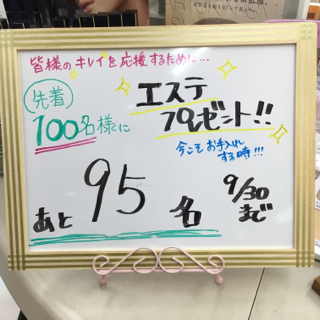 皆様のキレイを応援するために…
先着
100名様に
エステ
プレゼント!!
今こそお手入れ
する時!!!
あと 95 名
9/30
まで